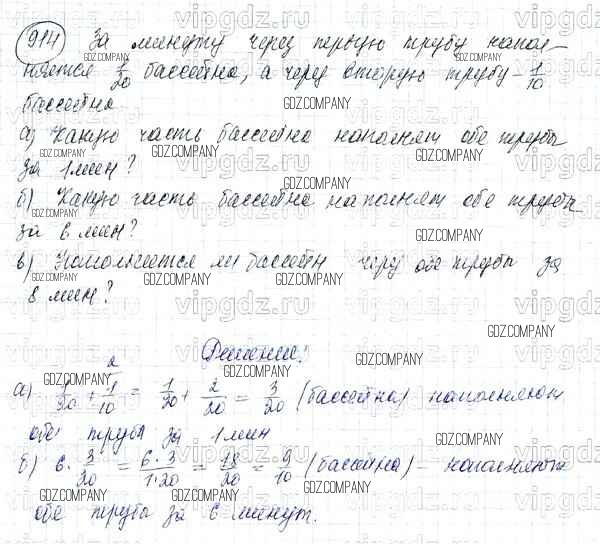 914 За минуту через первую трубу напол-
няется 1/20 бассейна, а через вторую трубу - 1/10
бассейна
а) Какую часть бассейна наполнят обе трубы
за 1 мин?
б) Какую часть бассейна наполнят обе трубы
за 6 мин?
в) Наполнится ли бассейн через обе трубы за
8 мин?
Решение:
а) 1/20 + 1/10 = 1/20 + 2/20 = 3/20 (бассейна) наполняют
обе трубы за 1 мин
б) 6 · 3/20 = 6·3/1·20 = 18/20 = 9/10 (бассейна) - наполняют
обе трубы за 6 минут.
vipgdz.ru
GDZ.COMPANY